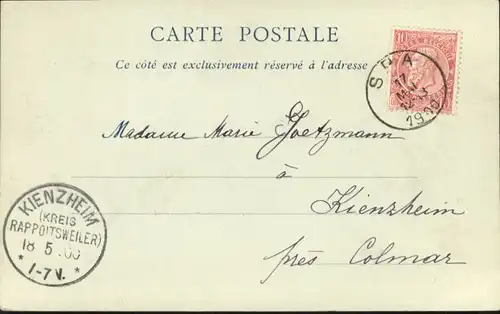 CARTE POSTALE
Ce côté est exclusivement réservé à l'adresse
10
SPA
1900
Madame Marie Goetzmann
à
Kienzheim
près Colmar
KIENZHEIM
(KREIS
RAPPOLTSWEILER)
18 5 .00
* 1-7 V. *